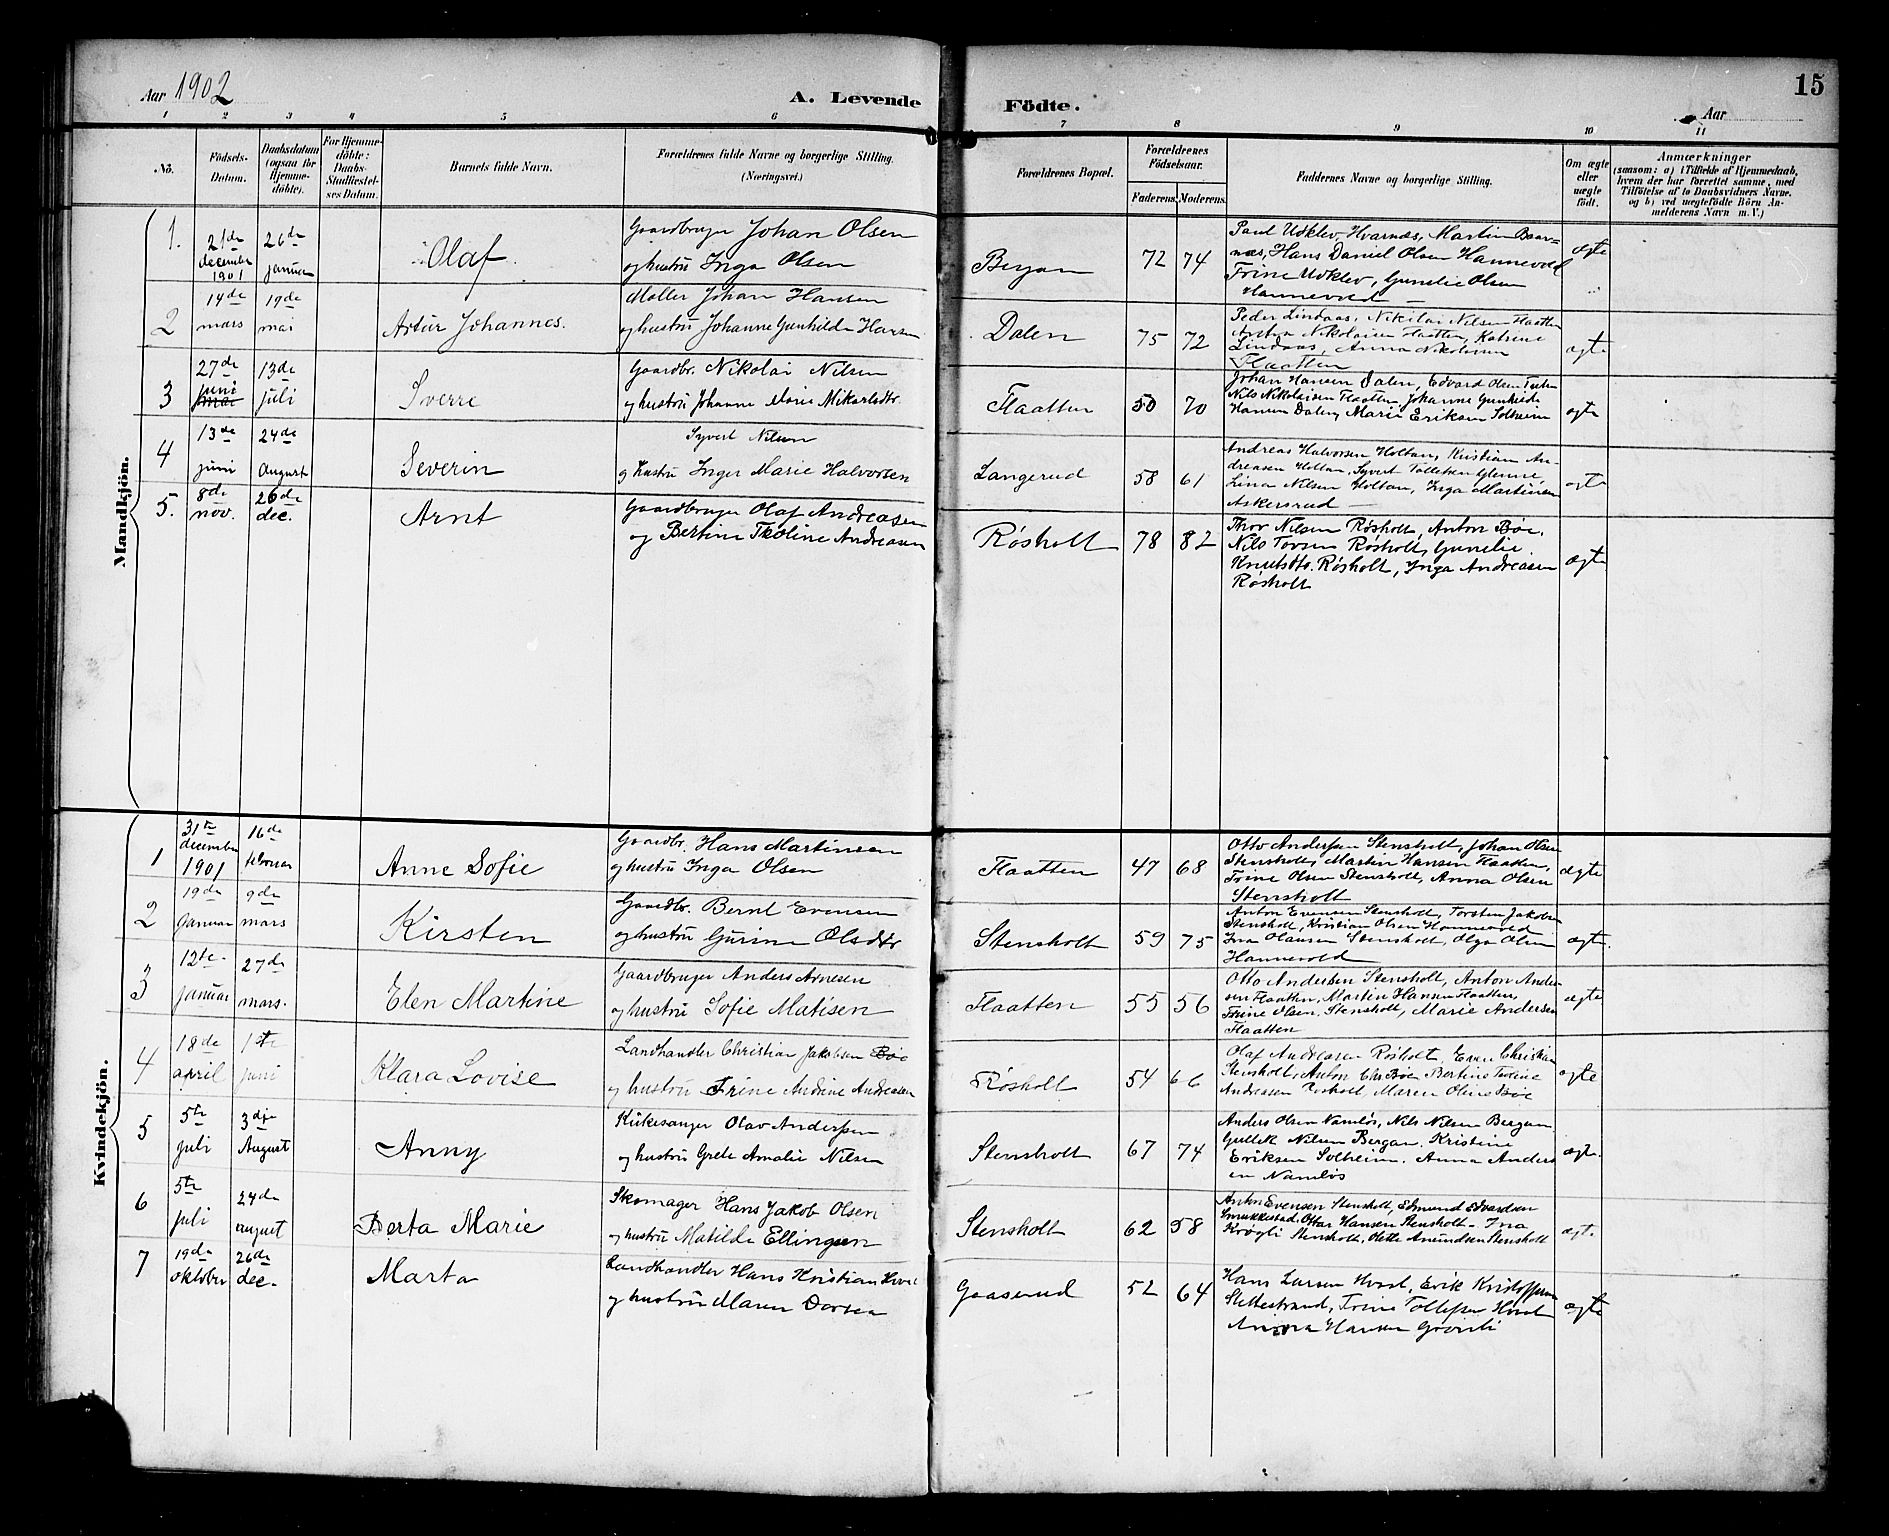 Aar 1902
A. Levende Födte.
15
Aar
1 2 3 4 5 6 7 8 9 10 11
No.
Födsels-Datum.
Daabsdatum (ogsaa for Hjemmedöbte).
For Hjemmedöbte: Daabs-Stadfæstelses Datum.
Barnets fulde Navn.
Forældrenes fulde Navne og borgerlige Stilling. (Næringsvei.)
Forældrenes Bopæl.
Forældrenes Födselsaar.
Faderens. Moderens.
Faddernes Navne og borgerlige Stilling.
Om ægte eller uægte födt.
Anmærkninger
(saasom: a) i Tilfælde af Hjemmedaab, hvem der har forrettet samme, med Tilföielse af to Daabsvidners Navne. og b) ved uægtefödte Börn Anmelderens Navn m. V.)
Mandkjön.
1. 21de december 1901 26de januar Olaf Gaardbruger Johan Olsen
og hustru Inga Olsen Bergan 72 74 ægte
Paul Udklev Hvarnæs, Martin
Hans Daniel Olsen Hannevold
Trine Udklev, Gunelie Olsen
Hannevold
2 14de mars 19de mai Artur Johannes. Møller Johan Hansen
og hustru Johanne Gunhilde Hansen Dalen 75 72 ægte
Peder Lindaas, Nikolai Nilsen Flaatten
Nikolaisen Flaatten, Katrine
Lindaas, Anna Nikolaisen
Flaatten
3 27de juni 13de juli Sverre Gaardbr. Nikolai Nilsen
og hustru Johanne Marie Mikarlsdtr. Flaatten 50 70 ægte
Johan Hansen Dalen, Edvard Olsen
Nils Nikolaisen Flaatten, Johanne Gunhilde
Hansen Dalen, Marie Eriksen Solheim
4 13de juni 24de august Severin Syvert Nilsen
og hustru Inger Marie Halvorsen Langerud 58 61 ægte
Andreas Halvorsen Holtan, Kristian An-
dreasen Holtan, Syvert Tollefsen
Lina Nilsen Holtan, Inga Martinsen
Askersrud
5. 8de nov. 26de dec. Arnt Gaardbruger Olaf Andreasen
og Bertine Tkoline Andreasen Røsholt 78 82 ægte
Thor Nilsen Røsholt, Anton Bøe,
Nils Torsen Røsholt, Gunelie
Knutsdtr. Røsholt, Inga Andreasen
Røsholt
Kvindekjön.
1 31te december 1901 16de februar Anne Sofie Gaardbr. Hans Martinsen
og hustru Inga Olsen Flaatten 47 68 ægte
Otto Andersen Stensholt, Johan Olsen
Stensholt, Martin Hansen Flaatten,
Trine Olsen Stensholt, Anna Olsen
Stensholt
2 19de januar 9de mars Kirsten Gaardbr. Bernt Evensen
og hustru Gurine Olsdtr Stensholt 59 75 ægte.
Anton Evensen Stensholt, Torsten Jakobsen
Stensholt, Kristian Olsen Hannevold
Ina Olausen Stensholt, Olga Olsen
Hannevold
3 12te januar 27de mars. Elen Martine Gaardbruger Anders Arnesen
og hustru Sofie Matisen Flaatten 55 56 ægte
Otto Andersen Stensholt, Anton Ander-
sen Flaatten, Martin Hansen Flaatten,
Trine Olsen Stensholt, Marie Andersen
Flaatten
4 18de april 1ste juni Klara Lovise Landhandler Christian Jakobsen Bøe
og hustru Trine Andrine Andreasen Røsholt 54 66 ægte
Olaf Andreasen Røsholt, Even Christian
Stensholt, Anton Chr Bøe Bertine Tkoline
Andreasen Røsholt, Maren Oline Bøe
5 5te juli 3dje August Anny Kirkesanger Olav Andersen
og hustru Grete Amalie Nilsen Stensholt 67 74 ægte.
Anders Olsen Namløs, Nils Nilsen Bergan
Gullek Nilsen Bergan. Kristine
Eriksen Solheim. Anna Anders
en Namløs
6 5te juli 24de august Berta Marie Skomager Hans Jakob Olsen
og hustru Matilde Ellingsen Stensholt 62 58 ægte.
Anton Evensen Stensholt, Edmund Edvardsen
Smukkestad, Ottar Hansen Stensholt - Ina
Krøgli Stensholt, Olette Amundsen Stensholt
7 19de oktober 26de dec. Marta Landhandler Hans Kristian Hvaal
og hustru Maren Dorsea Gaaserud 52 64 ægte
Hans Larsen Hvaal, Erik Kristoffersen
Slettestrand, Trine Tollefsen Hvaal
Anna Hansen Grønli